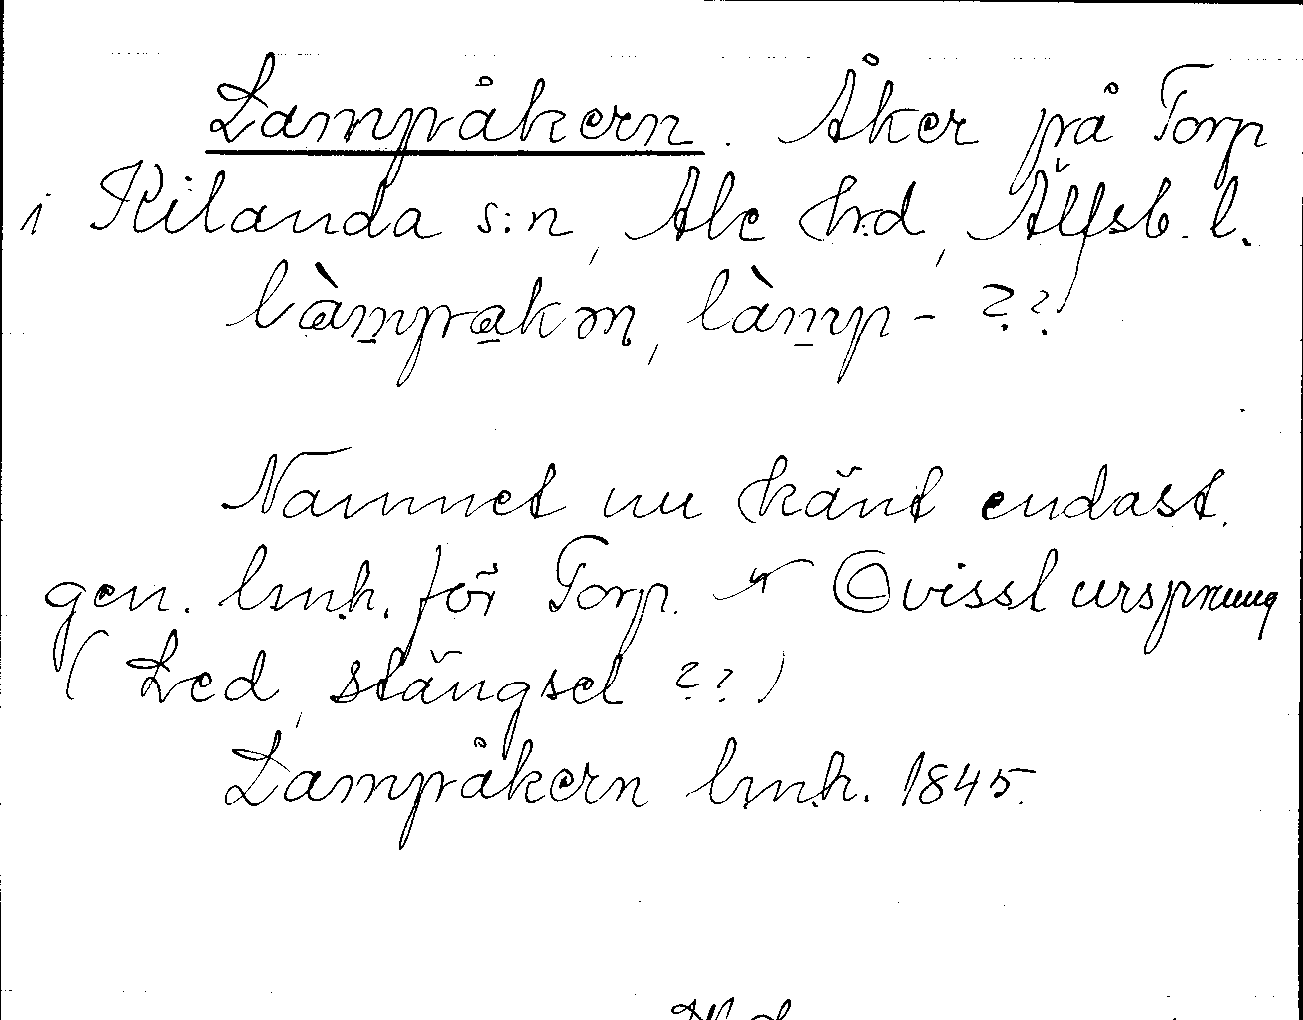 Lampåkern. Åker på Torp
i Kilanda s:n, Ale hrd, Älfsb. l.
làmpakən, làmp- ??
Namnet nu känt endast
gen. lmh. för Torp. Ovisst ursprung
(Led, stängsel ??)
Lampåkern lmh. 1845.